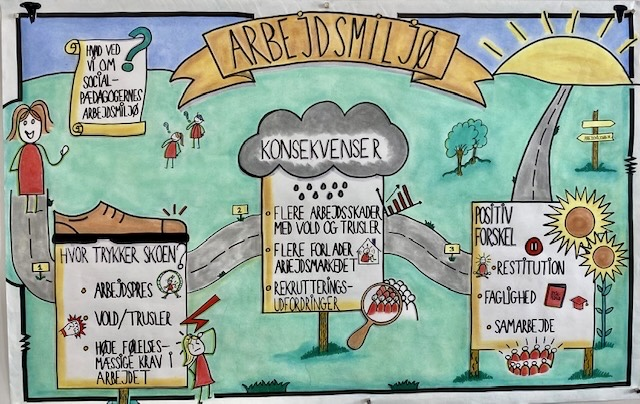 ARBEJDSMILJØ
HVAD VED
VI OM
SOCIAL-
PÆDAGOGERNES
ARBEJDSMILJØ
?
1
HVOR TRYKKER SKOEN?
• ARBEJDSPRES
• VOLD/TRUSLER
• HØJE FØLELSES-
MÆSSIGE KRAV I
ARBEJDET
2
KONSEKVENSER
• FLERE ARBEJDSSKADER
MED VOLD OG TRUSLER
• FLERE FORLADER
ARBEJDSMARKEDET
• REKRUTTERINGS-
UDFORDRINGER
3
POSITIV
FORSKEL
• RESTITUTION
• FAGLIGHED
• SAMARBEJDE